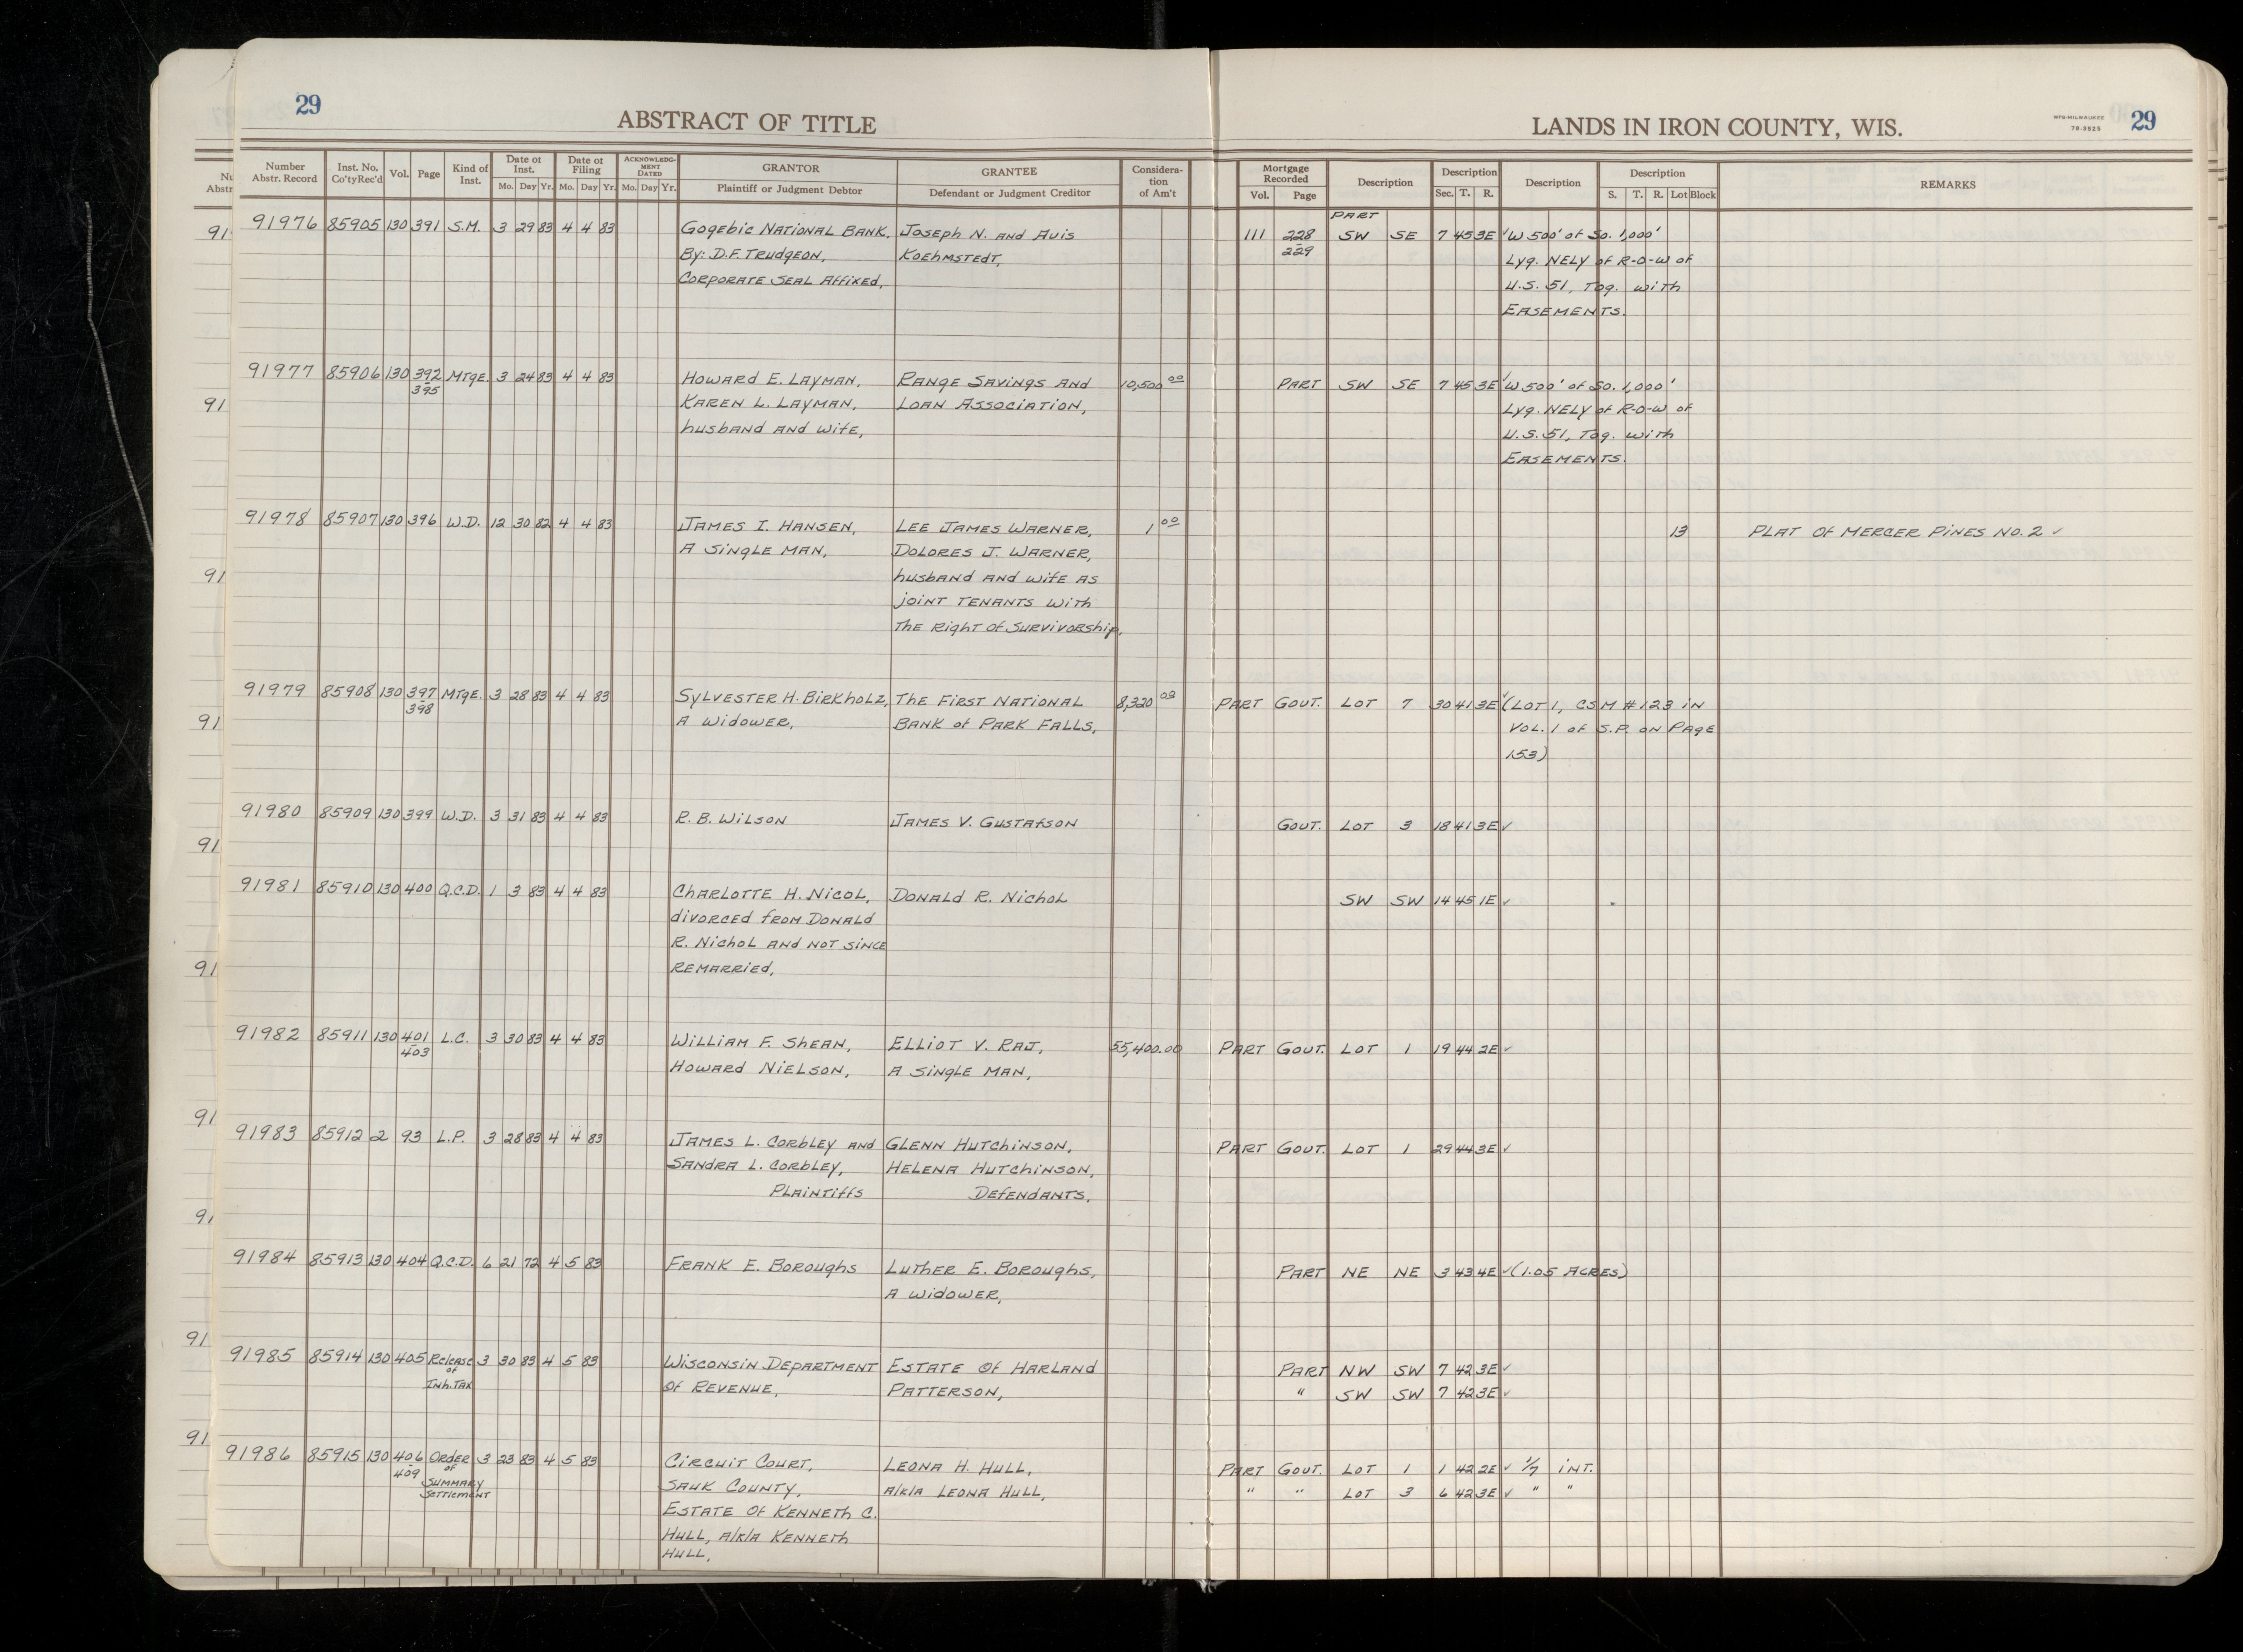 29
ABSTRACT OF TITLE
LANDS IN IRON COUNTY, WIS.
WPB-MILWAUKEE
78-3525
29
Number Abstr. Record Inst. No. Co'ty Rec'd Vol. Page Kind of Inst. Date of Inst. Mo. Day Yr. Date of Filing Mo. Day Yr. ACKNOWLEDGMENT DATED Mo. Day Yr. GRANTOR Plaintiff or Judgment Debtor GRANTEE Defendant or Judgment Creditor Consideration of Am't Mortgage Recorded Vol. Page Description Description Sec. T. R. Description Description S. T. R. Lot Block REMARKS
PART
91976 85905 130 391 S.M. 3 29 83 4 4 83 Gogebic National Bank, Joseph N. and Avis 111 228 SW SE 7 45 3E ✓ W 500' of So. 1,000'
By: D.F. Trudgeon, Koehmstedt, 229 Lyg. NELY of R-O-W of
Corporate Seal Affixed, U.S. 51, Tog. with
Easements.
91977 85906 130 392 Mtge. 3 24 83 4 4 83 Howard E. Layman, Range Savings and 10,500 00 PART SW SE 7 45 3E ✓ W 500' of So. 1,000'
395 Karen L. Layman, Loan Association, Lyg. NELY of R-O-W of
husband and wife, U.S. 51, Tog. with
Easements.
91978 85907 130 396 W.D. 12 30 82 4 4 83 James I. Hansen, Lee James Warner, 1 00 13 Plat of Mercer Pines No. 2 ✓
A single man, Dolores J. Warner,
husband and wife as
joint tenants with
the right of survivorship,
91979 85908 130 397 Mtge. 3 28 83 4 4 83 Sylvester H. Birkholz, The First National 8,320 03 PART Govt. LOT 7 30 41 3E ✓ (LOT 1, CSM #123 in
398 A widower, Bank of Park Falls, Vol. 1 of S.P. on Page
153)
91980 85909 130 399 W.D. 3 31 83 4 4 83 R. B. Wilson James V. Gustafson Govt. LOT 3 18 41 3E ✓
91981 85910 130 400 Q.C.D. 1 3 83 4 4 83 Charlotte H. Nicol, Donald R. Nichol SW SW 14 45 1E ✓
divorced from Donald
R. Nichol and not since
remarried,
91982 85911 130 401 L.C. 3 30 83 4 4 83 William F. Shean, Elliot V. Raj, 55,400.00 PART Govt. LOT 1 19 44 2E ✓
403 Howard Nielson, A single man,
91983 85912 2 93 L.P. 3 28 83 4 4 83 James L. Corbley and Glenn Hutchinson, PART Govt. LOT 1 29 44 3E ✓
Sandra L. Corbley, Helena Hutchinson,
Plaintiffs Defendants,
91984 85913 130 404 Q.C.D. 6 21 72 4 5 83 Frank E. Boroughs Luther E. Boroughs, PART NE NE 3 43 4E ✓ (1.05 Acres)
A widower,
91985 85914 130 405 Release 3 30 83 4 5 83 Wisconsin Department Estate of Harland PART NW SW 7 42 3E ✓
of Inh. Tax of Revenue, Patterson, " SW SW 7 42 3E ✓
91986 85915 130 406 Order 3 23 83 4 5 83 Circuit Court, Leona H. Hull, PART Govt. LOT 1 1 42 2E ✓ 1/7 INT.
409 of Summary Settlement Sauk County, a/k/a Leona Hull, " " LOT 3 6 42 3E ✓ " "
Estate of Kenneth C.
Hull, a/k/a Kenneth
Hull,